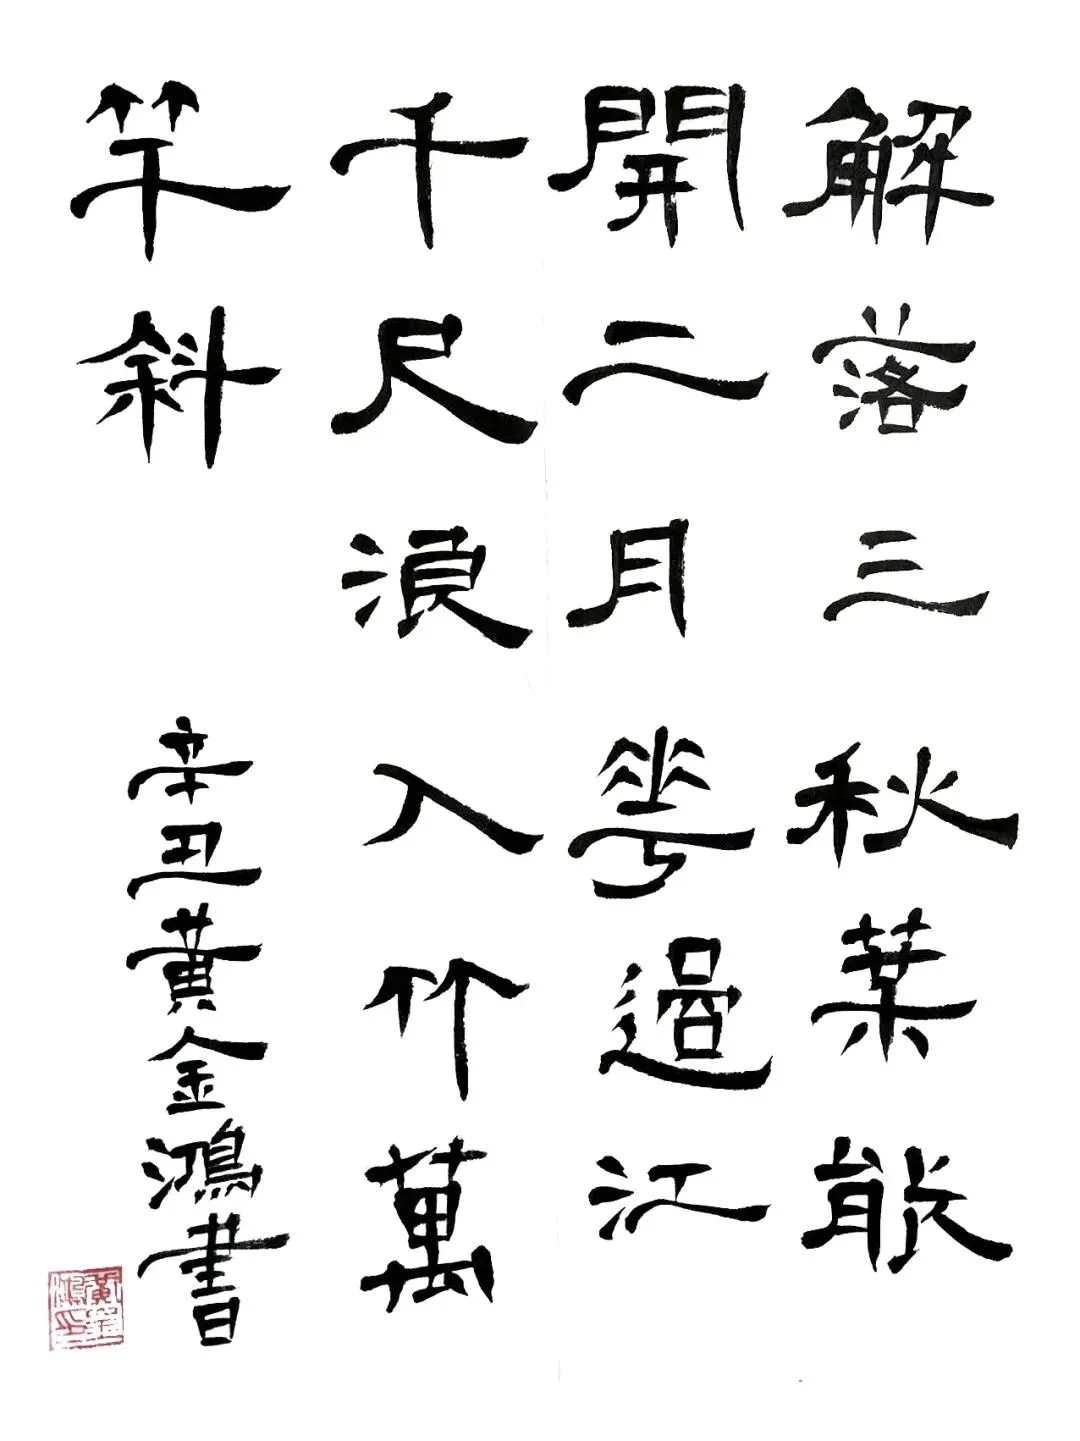 解落三秋葉能
開二月華過江
千尺浪入竹萬
竿斜
辛丑黃金鴻書
黃金鴻印